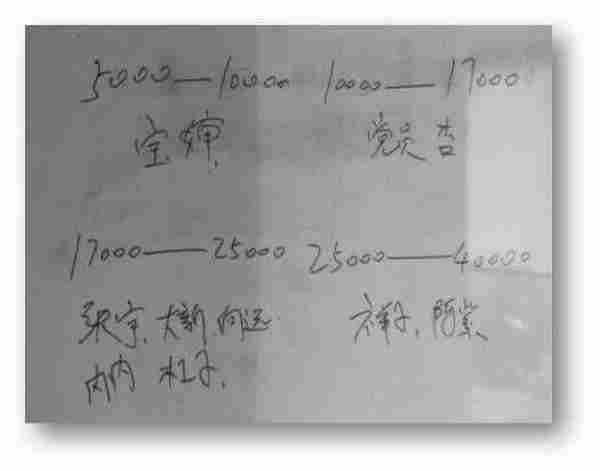 5000—10000 10000—17000
宝 党员
17000—25000 25000—40000
大新 向远 祥子、阿紫
内内 杠子、